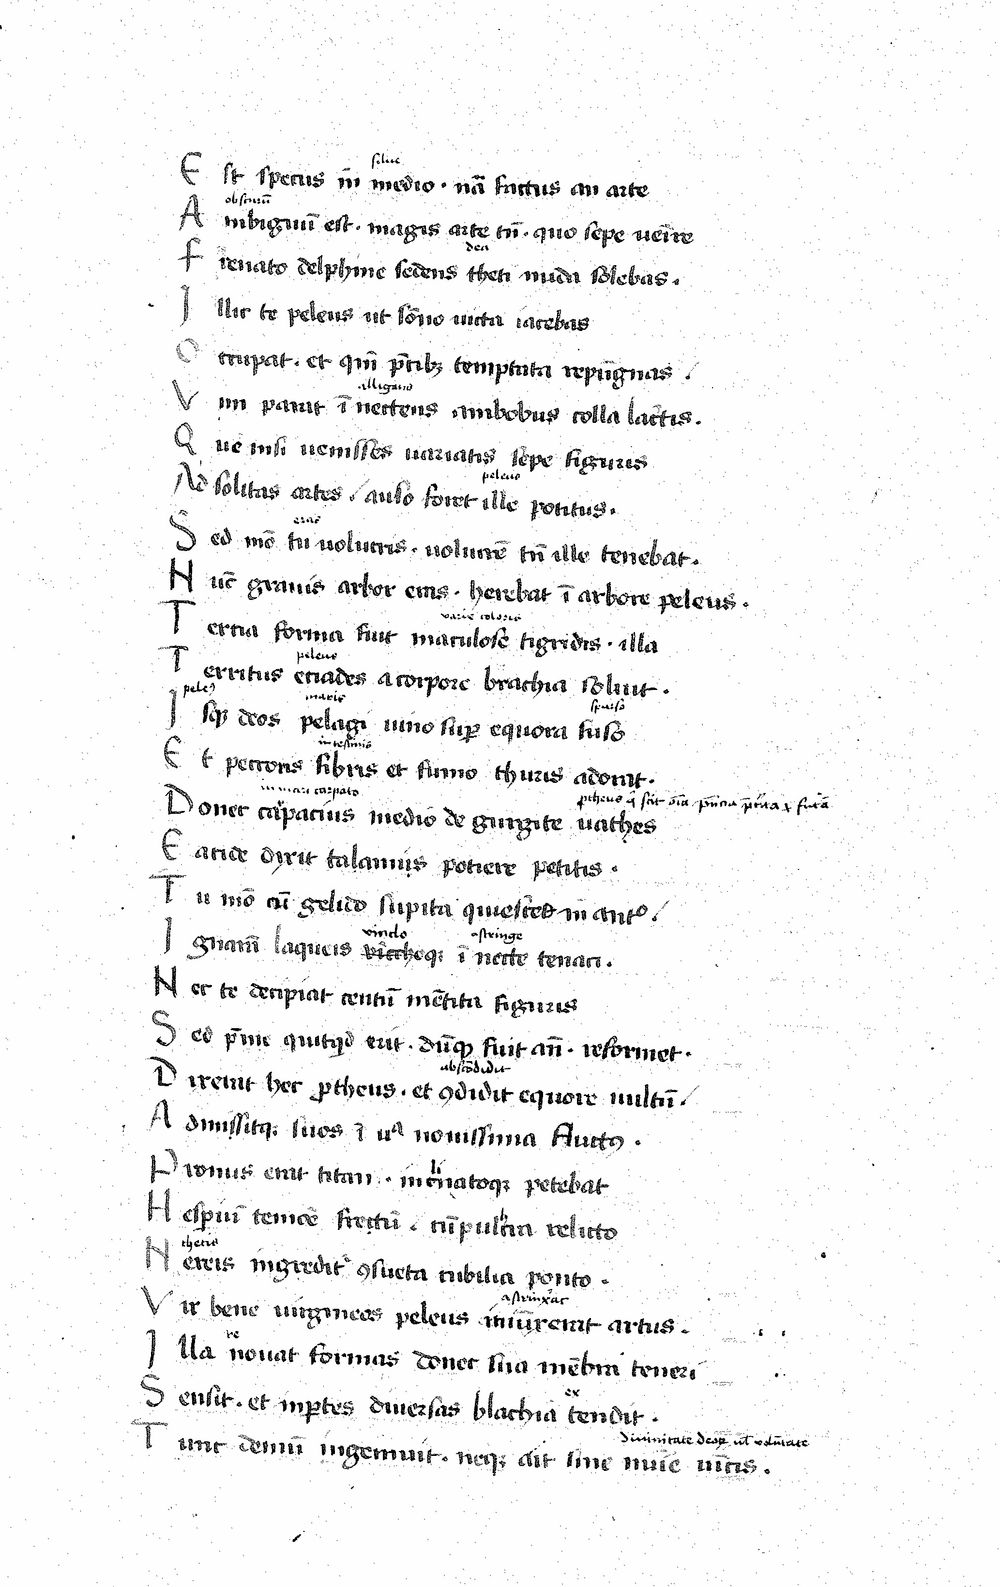 silue
E st specus in̄ medio · nā factus an arte
obscurū
A mbiguū est · magis arte tn̄ · quo sepe uenire
dea
F renato delphine sedens theti nuda solebas ·
I llic te peleus ut sōno uicta iacebas
O ccupat · et qm̄ p̄cibꝫ temptata repūgnas /
alligans
V im parat ī nectens ambobus colla lac̄tis ·
Q ue nisi uenisses uariatis sepe figuris
peleus
Ad solitas artes / auso foret ille potitus ·
eras
S ed mō tu uolucris · uolucrē tn̄ ille tenebat ·
N uc̄ grauis arbor eras · herebat ī arbore peleus ·
varie coloris
T ercia forma fuit maculose tigridis · illa
peleus
T erritus eciades a corpore brachia soluit ·
peleꝰ maris sparso
I sqꝫ deos pelagi uino suꝑ equora fuso
intestinis
E t pectoris fibris et fumo thuris adorat ·
in mari carpato
ptheus q̄ scit oīa p̄ncia p̄terita ⁊ futā
D onec carpacius medio de gurgite uathes
E acide dixit talamiis potiere petitis ·
T u mō cū gelido supita quiesc̄et in antº /
vinclo astringe
I gnarā laqueis vīccheqꝫ ī necte tenaci ·
N ec te decipiat centū mētita figuris
S ed p̄me quitqd erit · dūqꝫ fuit an̄ · reformet ·
abscōdidit
D ixerat hec ꝓtheus · et ꝯdidit equore uultū /
A dmissitqꝫ suos ī uª nouissima fluctꝰ ·
P ronus erat titan · inclinatoqꝫ petebat
H esperiū temōe fretū · cū pulcra relicto
thetis
N ereis ingreditᷣ ꝯsueta cubilia ponto ·
astrinxat
V ix bene uirgineos peleus inuaxerat artus ·
re
I lla nouat formas donec sua mēbra teneri
ex
S ensit · et inꝑtes diuersas blachia tendit ·
diuinitate deoꝝ ul̄ volūtate
T unc demū ingemuit · neqꝫ ait sine nuīe uīcis ·